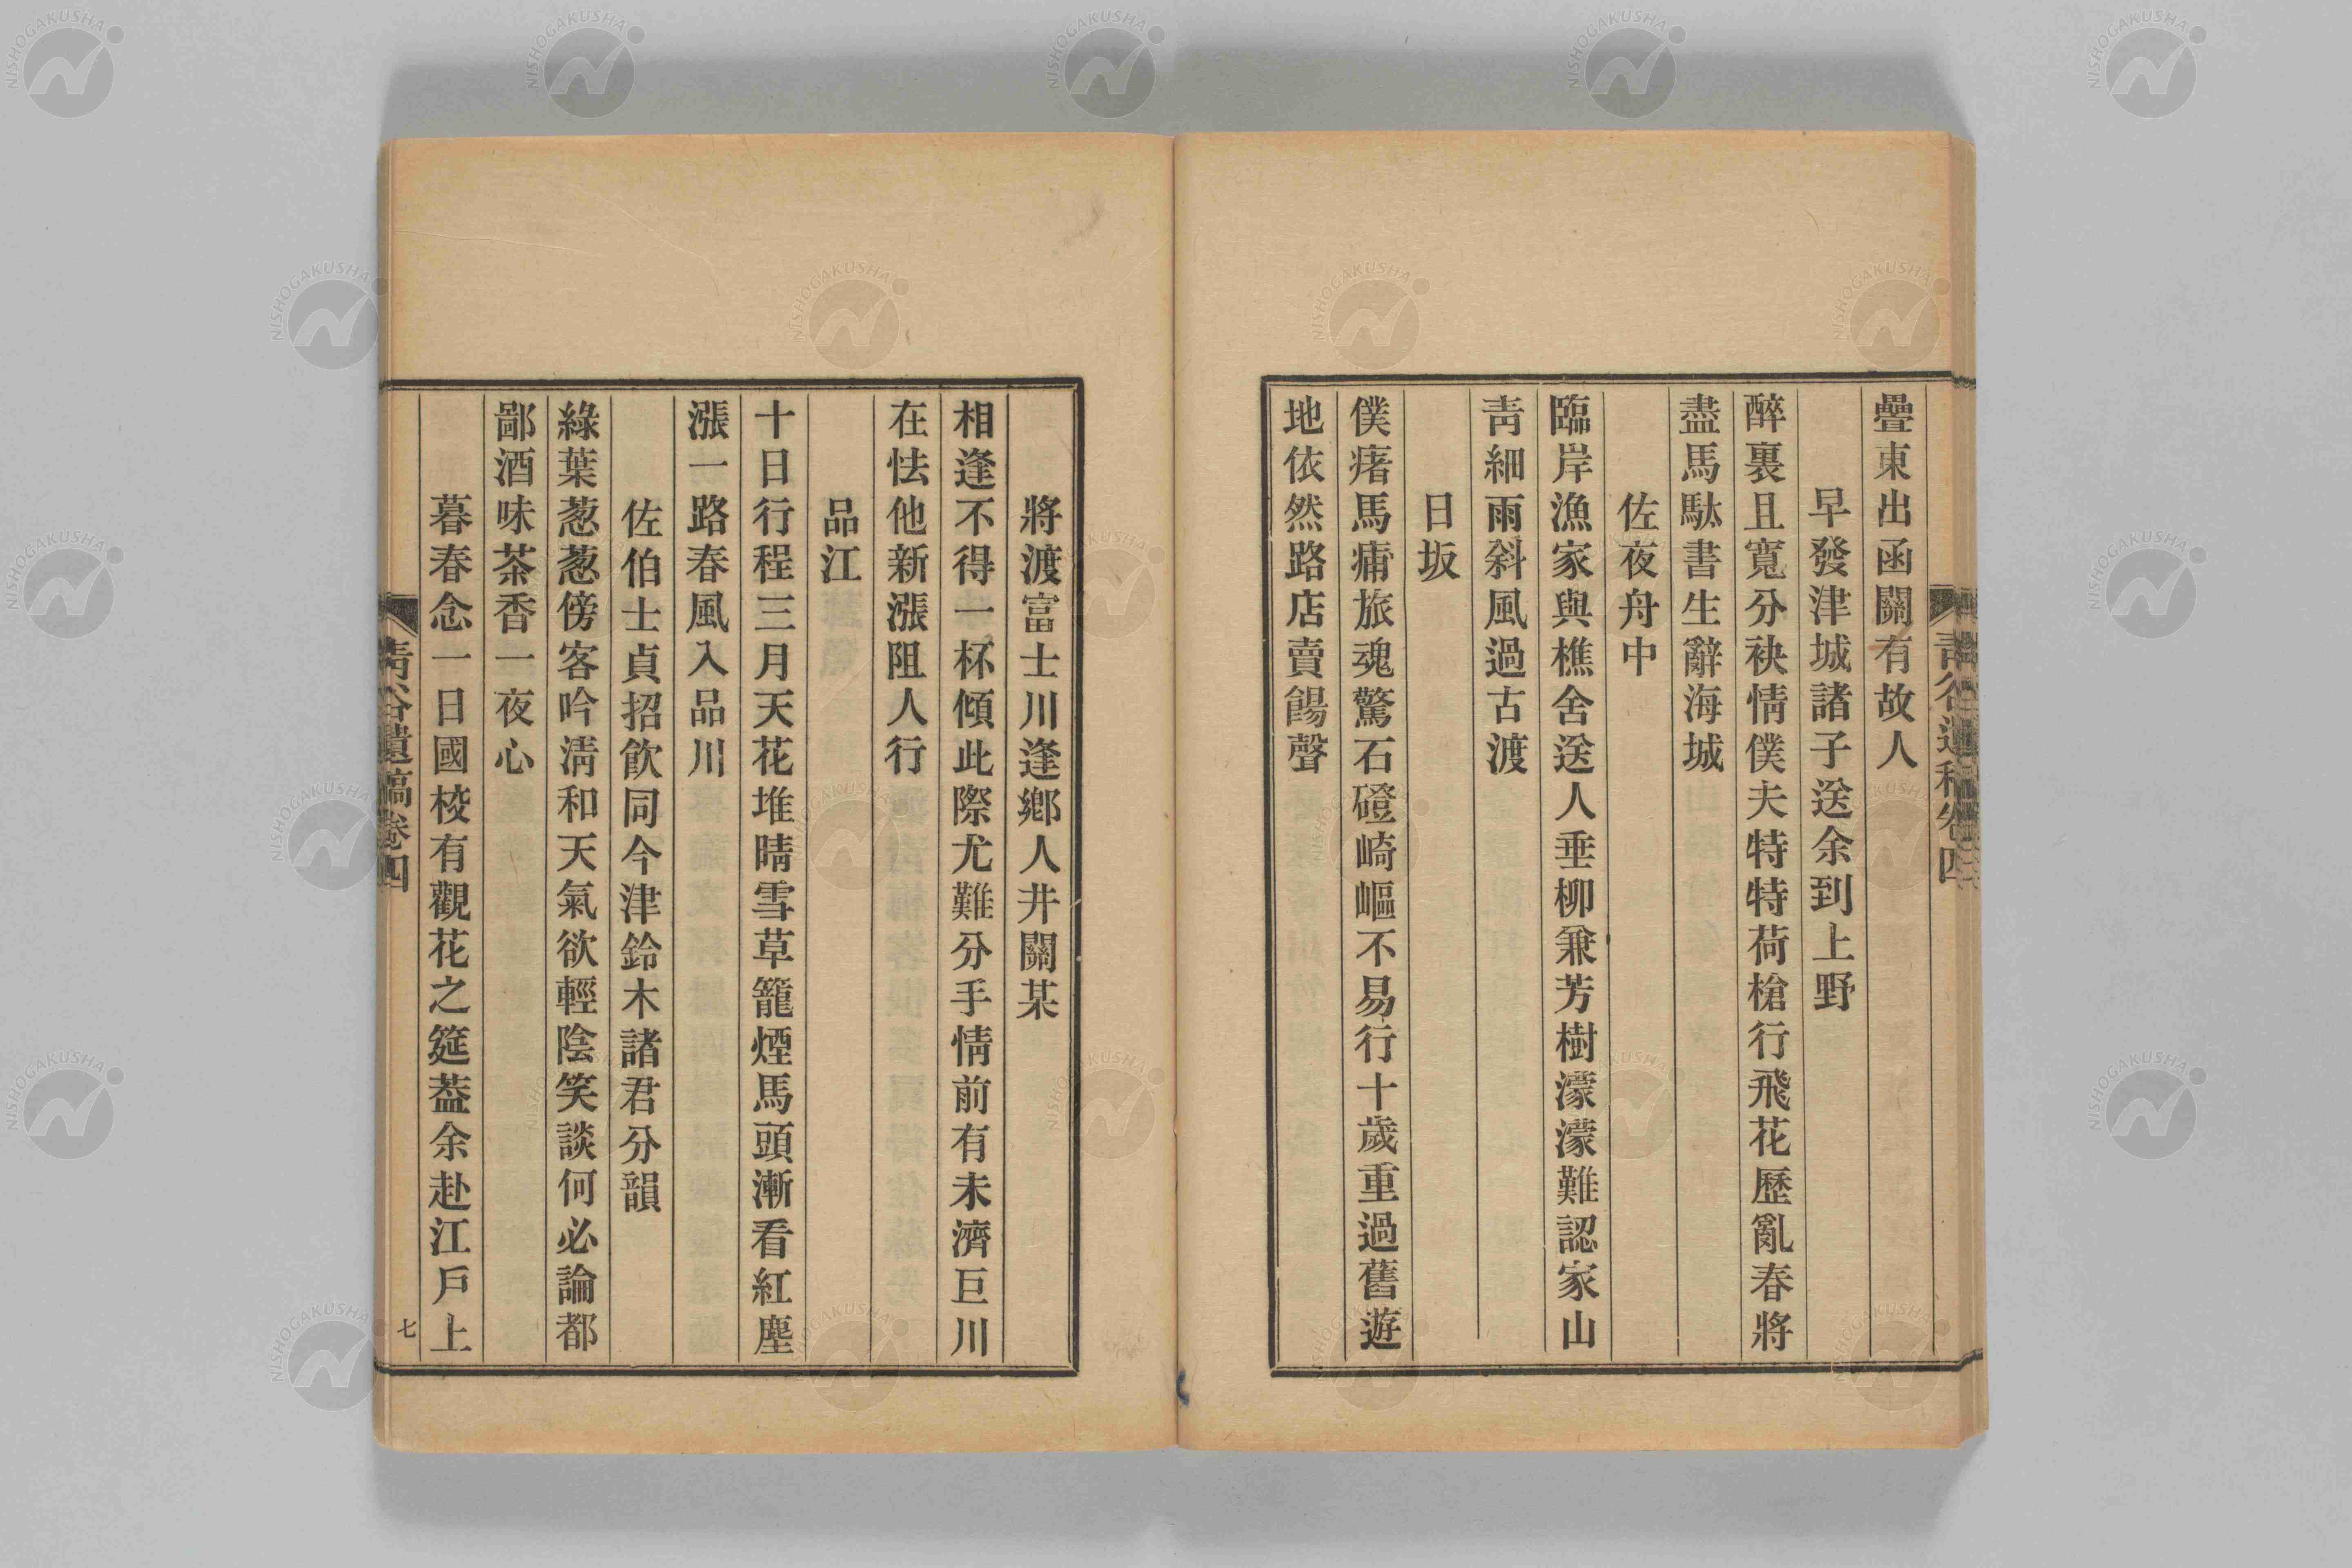 疊東出函關有故人
早發津城諸子送余到上野
醉裏且寬分袂情僕夫特特荷槍行飛花歷亂春將
盡馬馱書生辭海城
佐夜舟中
臨岸漁家與樵舍送人垂柳兼芳樹濛濛難認家山
靑細雨斜風過古渡
日坂
僕瘏馬痡旅魂驚石磴崎嶇不易行十歲重過舊遊
地依然路店賣餳聲
將渡富士川逢鄉人井關某
相逢不得一杯傾此際尤難分手情前有未濟巨川
在怯他新漲阻人行
品江
十日行程三月天花堆晴雪草籠煙馬頭漸看紅塵
漲一路春風入品川
佐伯士貞招飮同今津鈴木諸君分韻
綠葉葱葱傍客吟淸和天氣欲輕陰笑談何必論都
鄙酒味茶香一夜心
暮春念一日國校有觀花之筵葢余赴江戶上
靑谷遺稿卷四
七
NISHOGAKUSHA